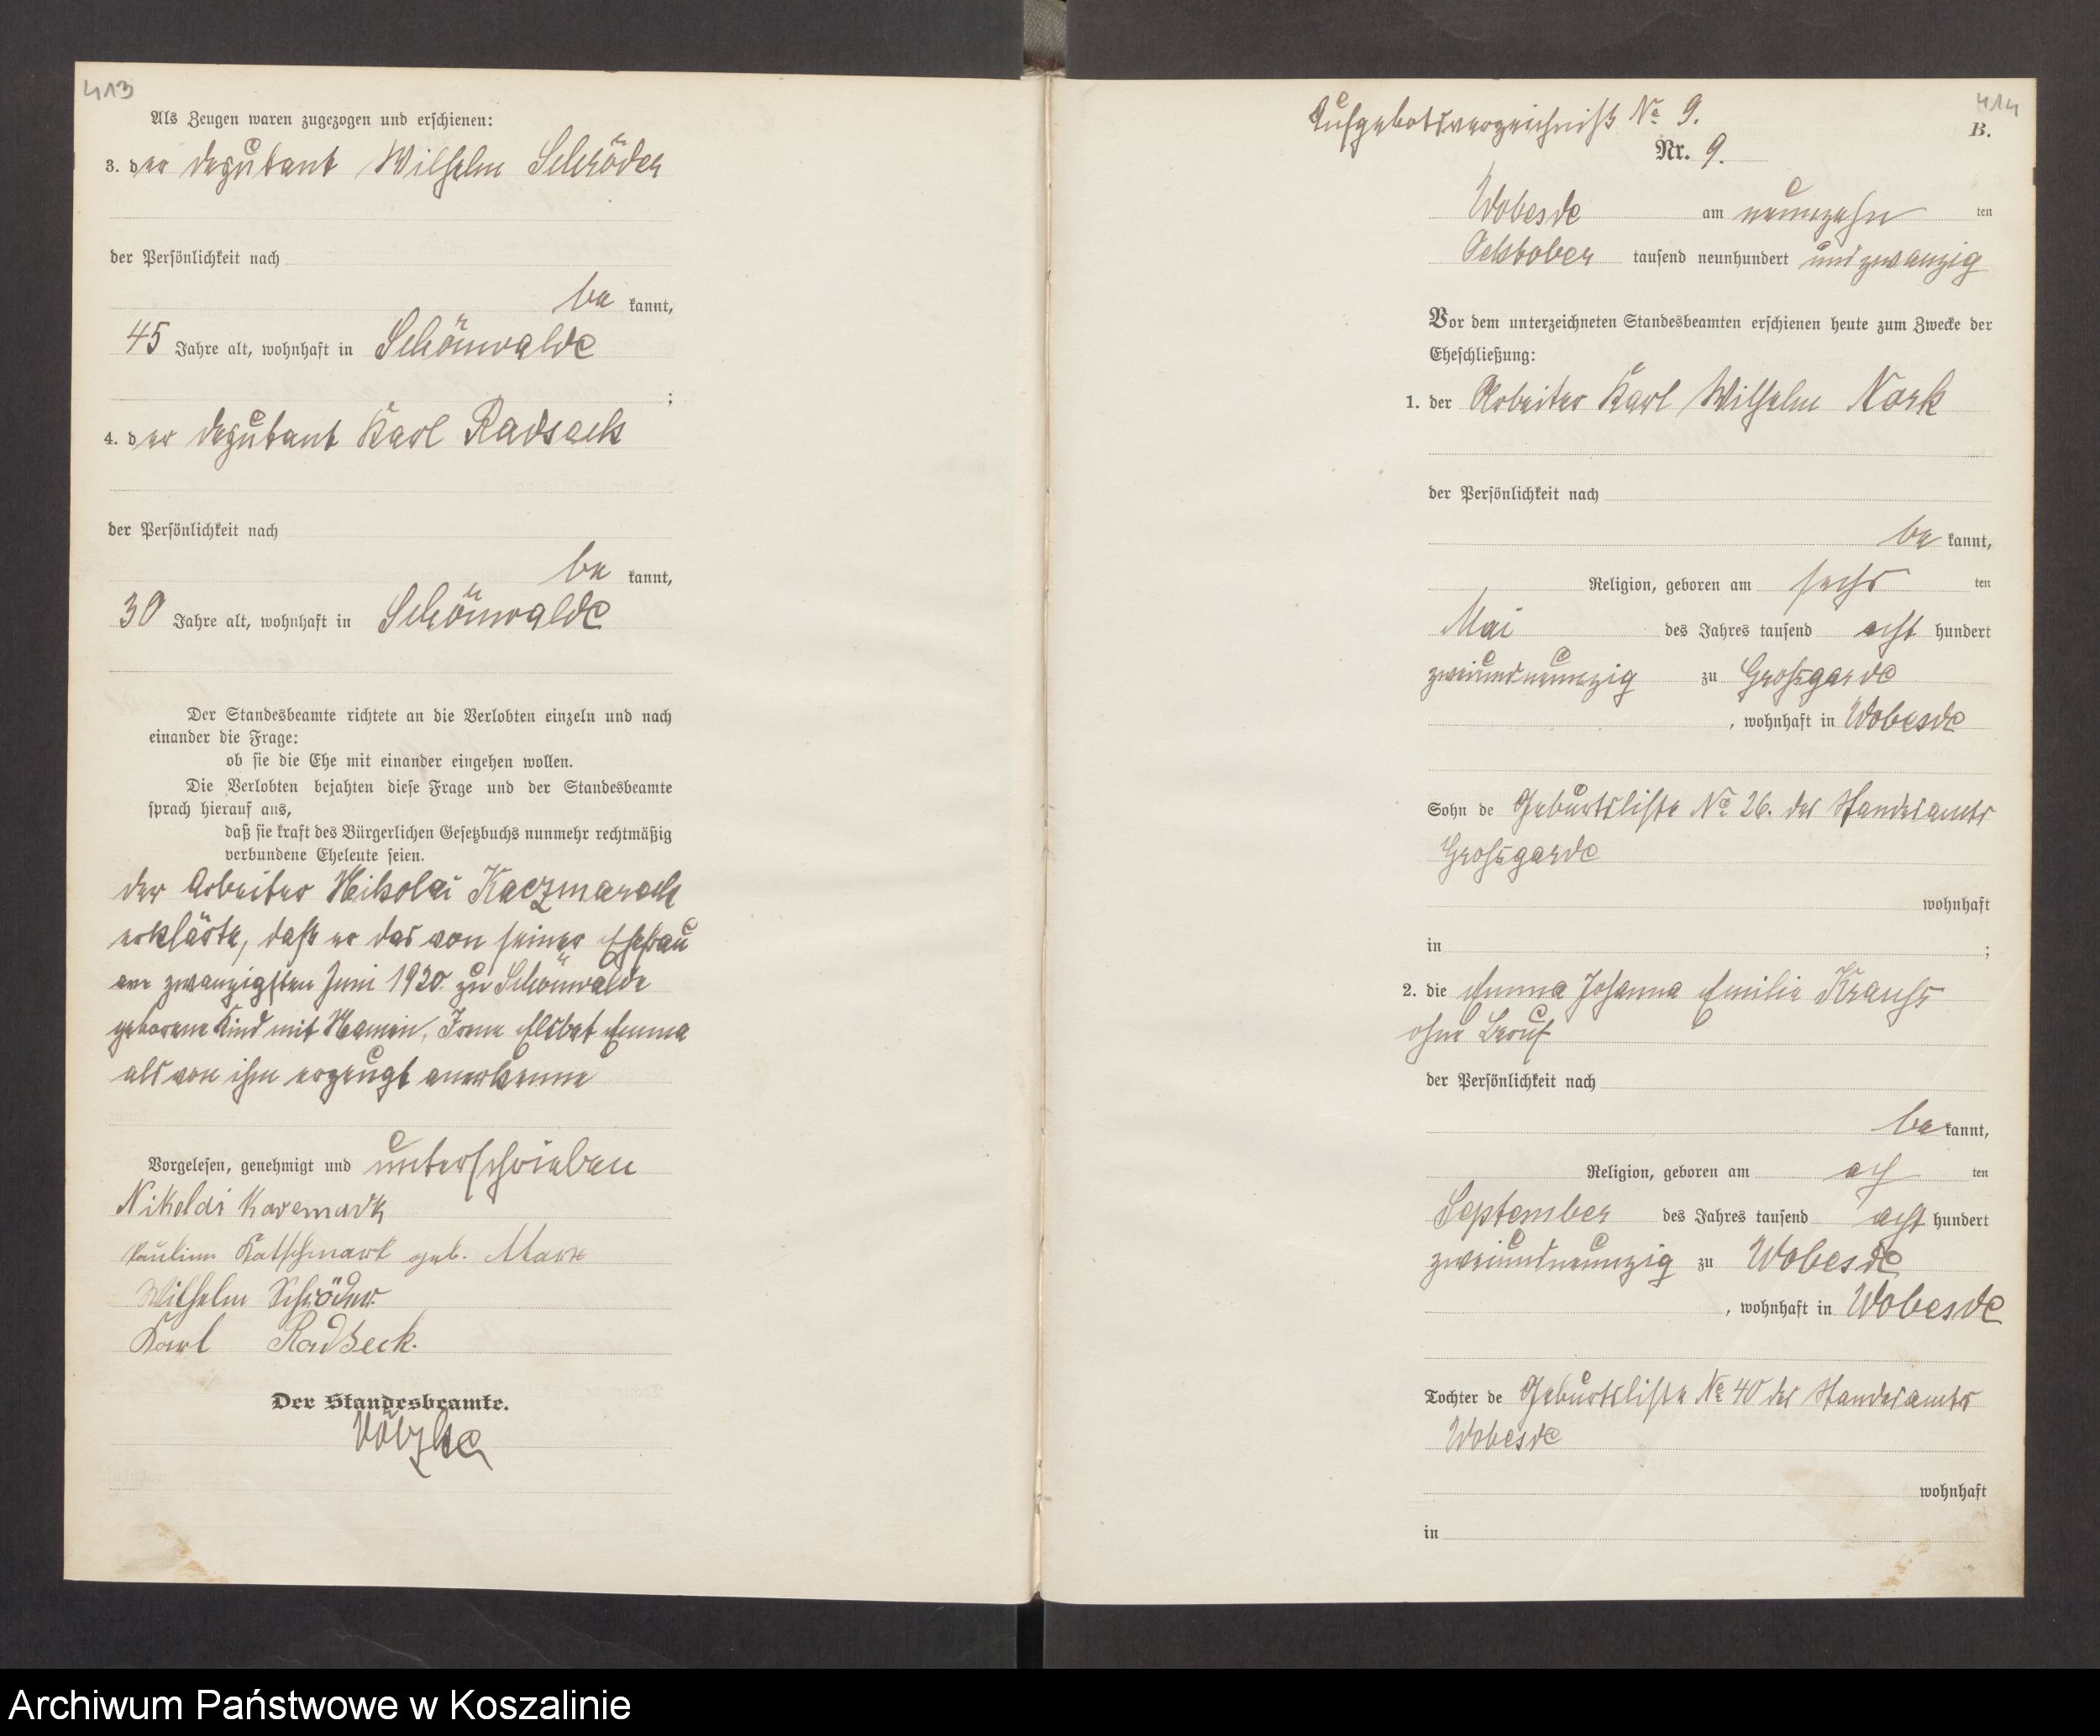 413
Als Zeugen waren zugezogen und erschienen:
3. der Deputant Wilhelm Schröder
der Persönlichkeit nach
be kannt,
45 Jahre alt, wohnhaft in Schönwalde
;
4. der Deputant Karl Radsack
der Persönlichkeit nach
be kannt,
30 Jahre alt, wohnhaft in Schönwalde
Der Standesbeamte richtete an die Verlobten einzeln und nach
einander die Frage:
ob sie die Ehe mit einander eingehen wollen.
Die Verlobten bejahten diese Frage und der Standesbeamte
sprach hierauf aus,
daß sie kraft des Bürgerlichen Gesetzbuchs nunmehr rechtmäßig
verbundene Eheleute seien.
der Arbeiter Nikolai Kaczmarack
erklärte, daß er das von seiner Ehefrau
am zwanzigsten Juni 1920. zu Schönwalde
geborene Kind mit Namen, Irma Elsbet Emma
als von ihm erzeugt anerkenne
Vorgelesen, genehmigt und unterschrieben
Nikolai
Pauline Katschmark geb. Marx
Wilhelm Schröder.
Karl Radseck.
Der Standesbeamte.
414
Aufgebotsverzeichniß No 9.
B.
Nr. 9.
Wobesde am neunzehn ten
Oektober tausend neunhundert und zwanzig
Vor dem unterzeichneten Standesbeamten erschienen heute zum Zwecke der
Eheschließung:
1. der Arbeiter Karl Wilhelm Nork
der Persönlichkeit nach
be kannt,
Religion, geboren am sechs ten
Mai des Jahres tausend acht hundert
zweiundneunzig zu Großgarde
, wohnhaft in Wobesde
Sohn de Geburtsliste No 26. des Standesamts
Großgarde
wohnhaft
in ;
2. die Emma Johanna Emilie Krauß
ohne Beruf
der Persönlichkeit nach
be kannt,
Religion, geboren am ach ten
September des Jahres tausend acht hundert
zweiundneunzig zu Wobesde
, wohnhaft in Wobesde
Tochter de Geburtsliste No 40 des Standesamts
Wobesde
wohnhaft
in
Archiwum Państwowe w Koszalinie